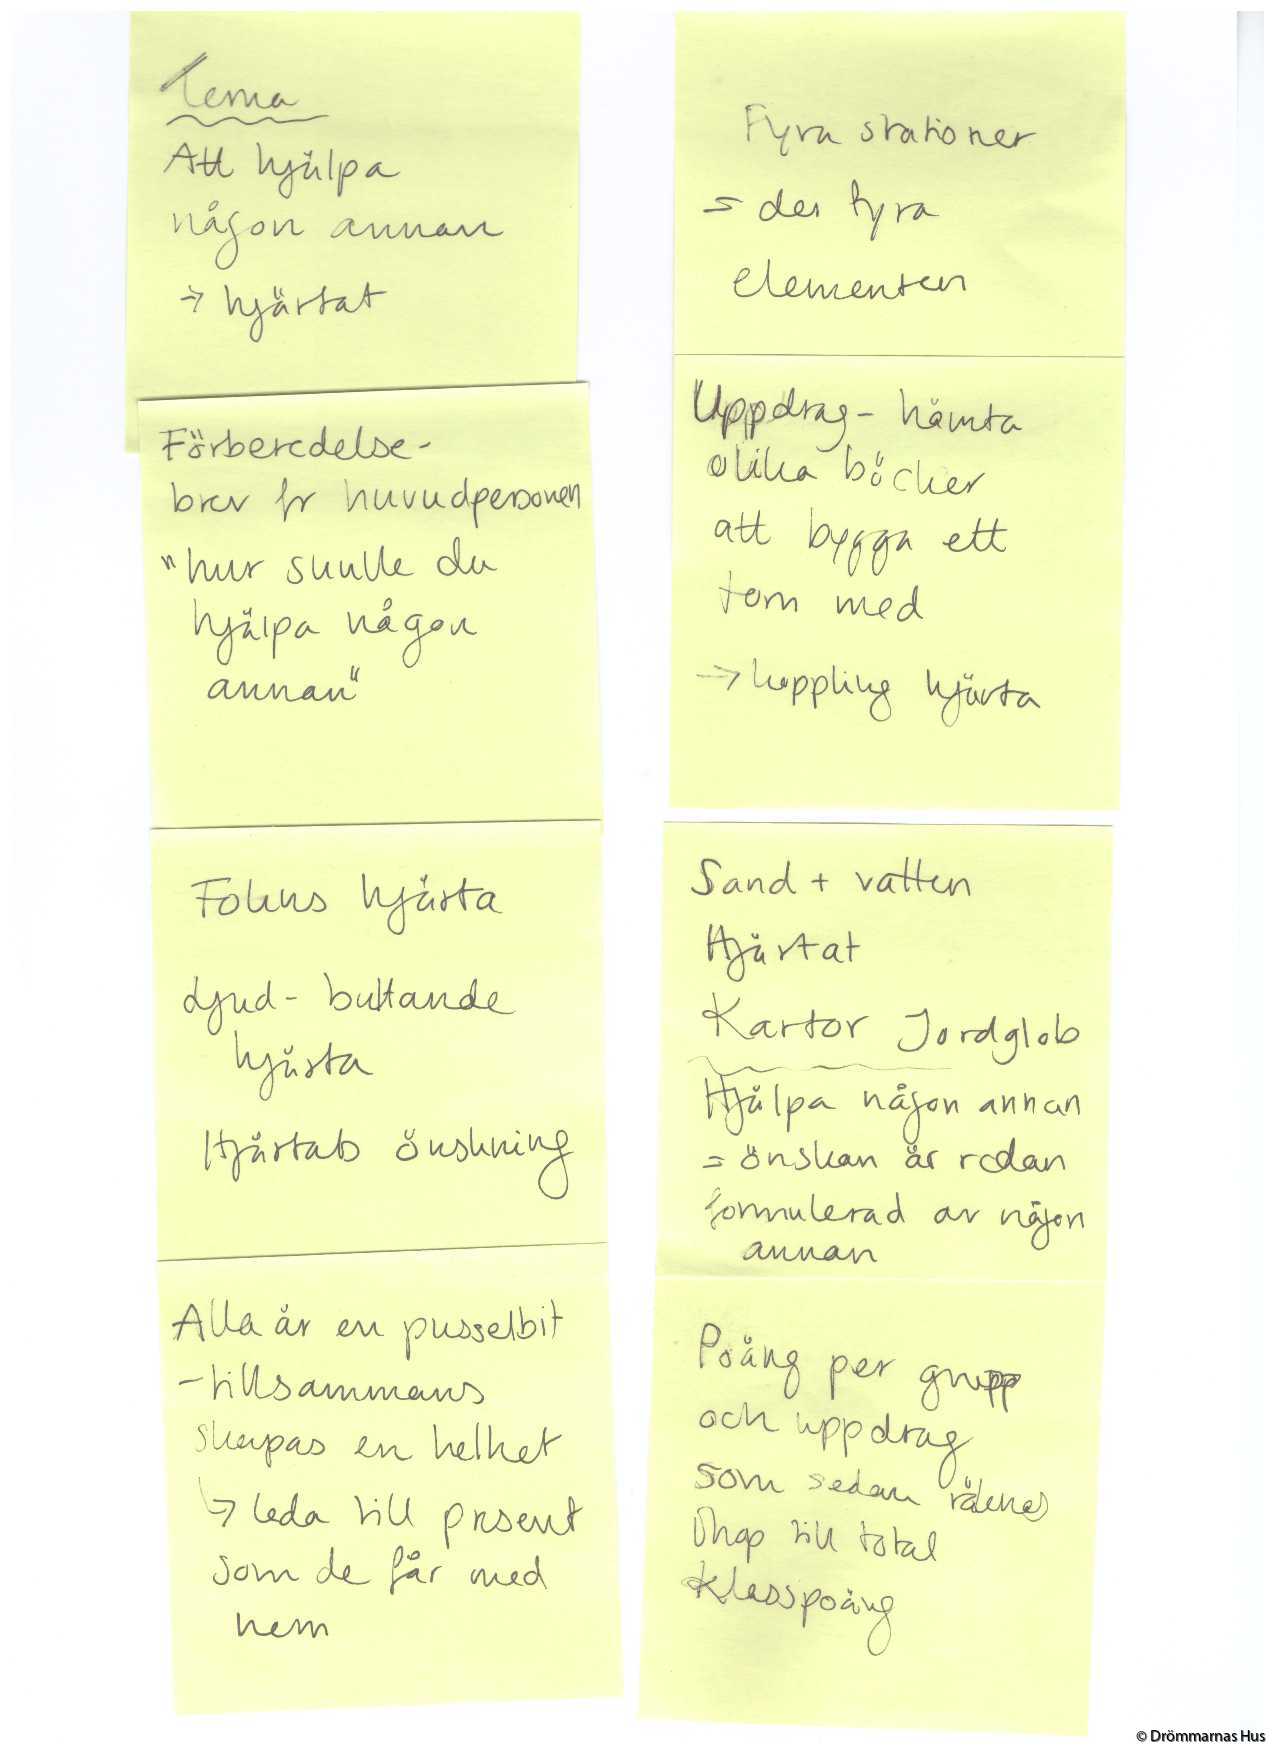 Tema
Att hjälpa
någon annan
→ hjärtat
Förberedelse-
brev fr huvudpersonen
"hur skulle du
hjälpa någon
annan"
Fokus hjärta
Ljud - bultande
hjärta
Hjärtats önskning
Alla är en pusselbit
- tillsammans
skapas en helhet
↳ leda till present
som de får med
hem
Fyra stationer
= de fyra
elementen
Uppdrag - hämta
olika böcker
att bygga ett
torn med
→ koppling hjärta
Sand + vatten
Hjärtat
Kartor Jordglob
Hjälpa någon annan
= önskan är redan
formulerad av någon
annan
Poäng per grupp
och uppdrag
som sedan räknas
ihop till total
klasspoäng
© Drömmarnas Hus